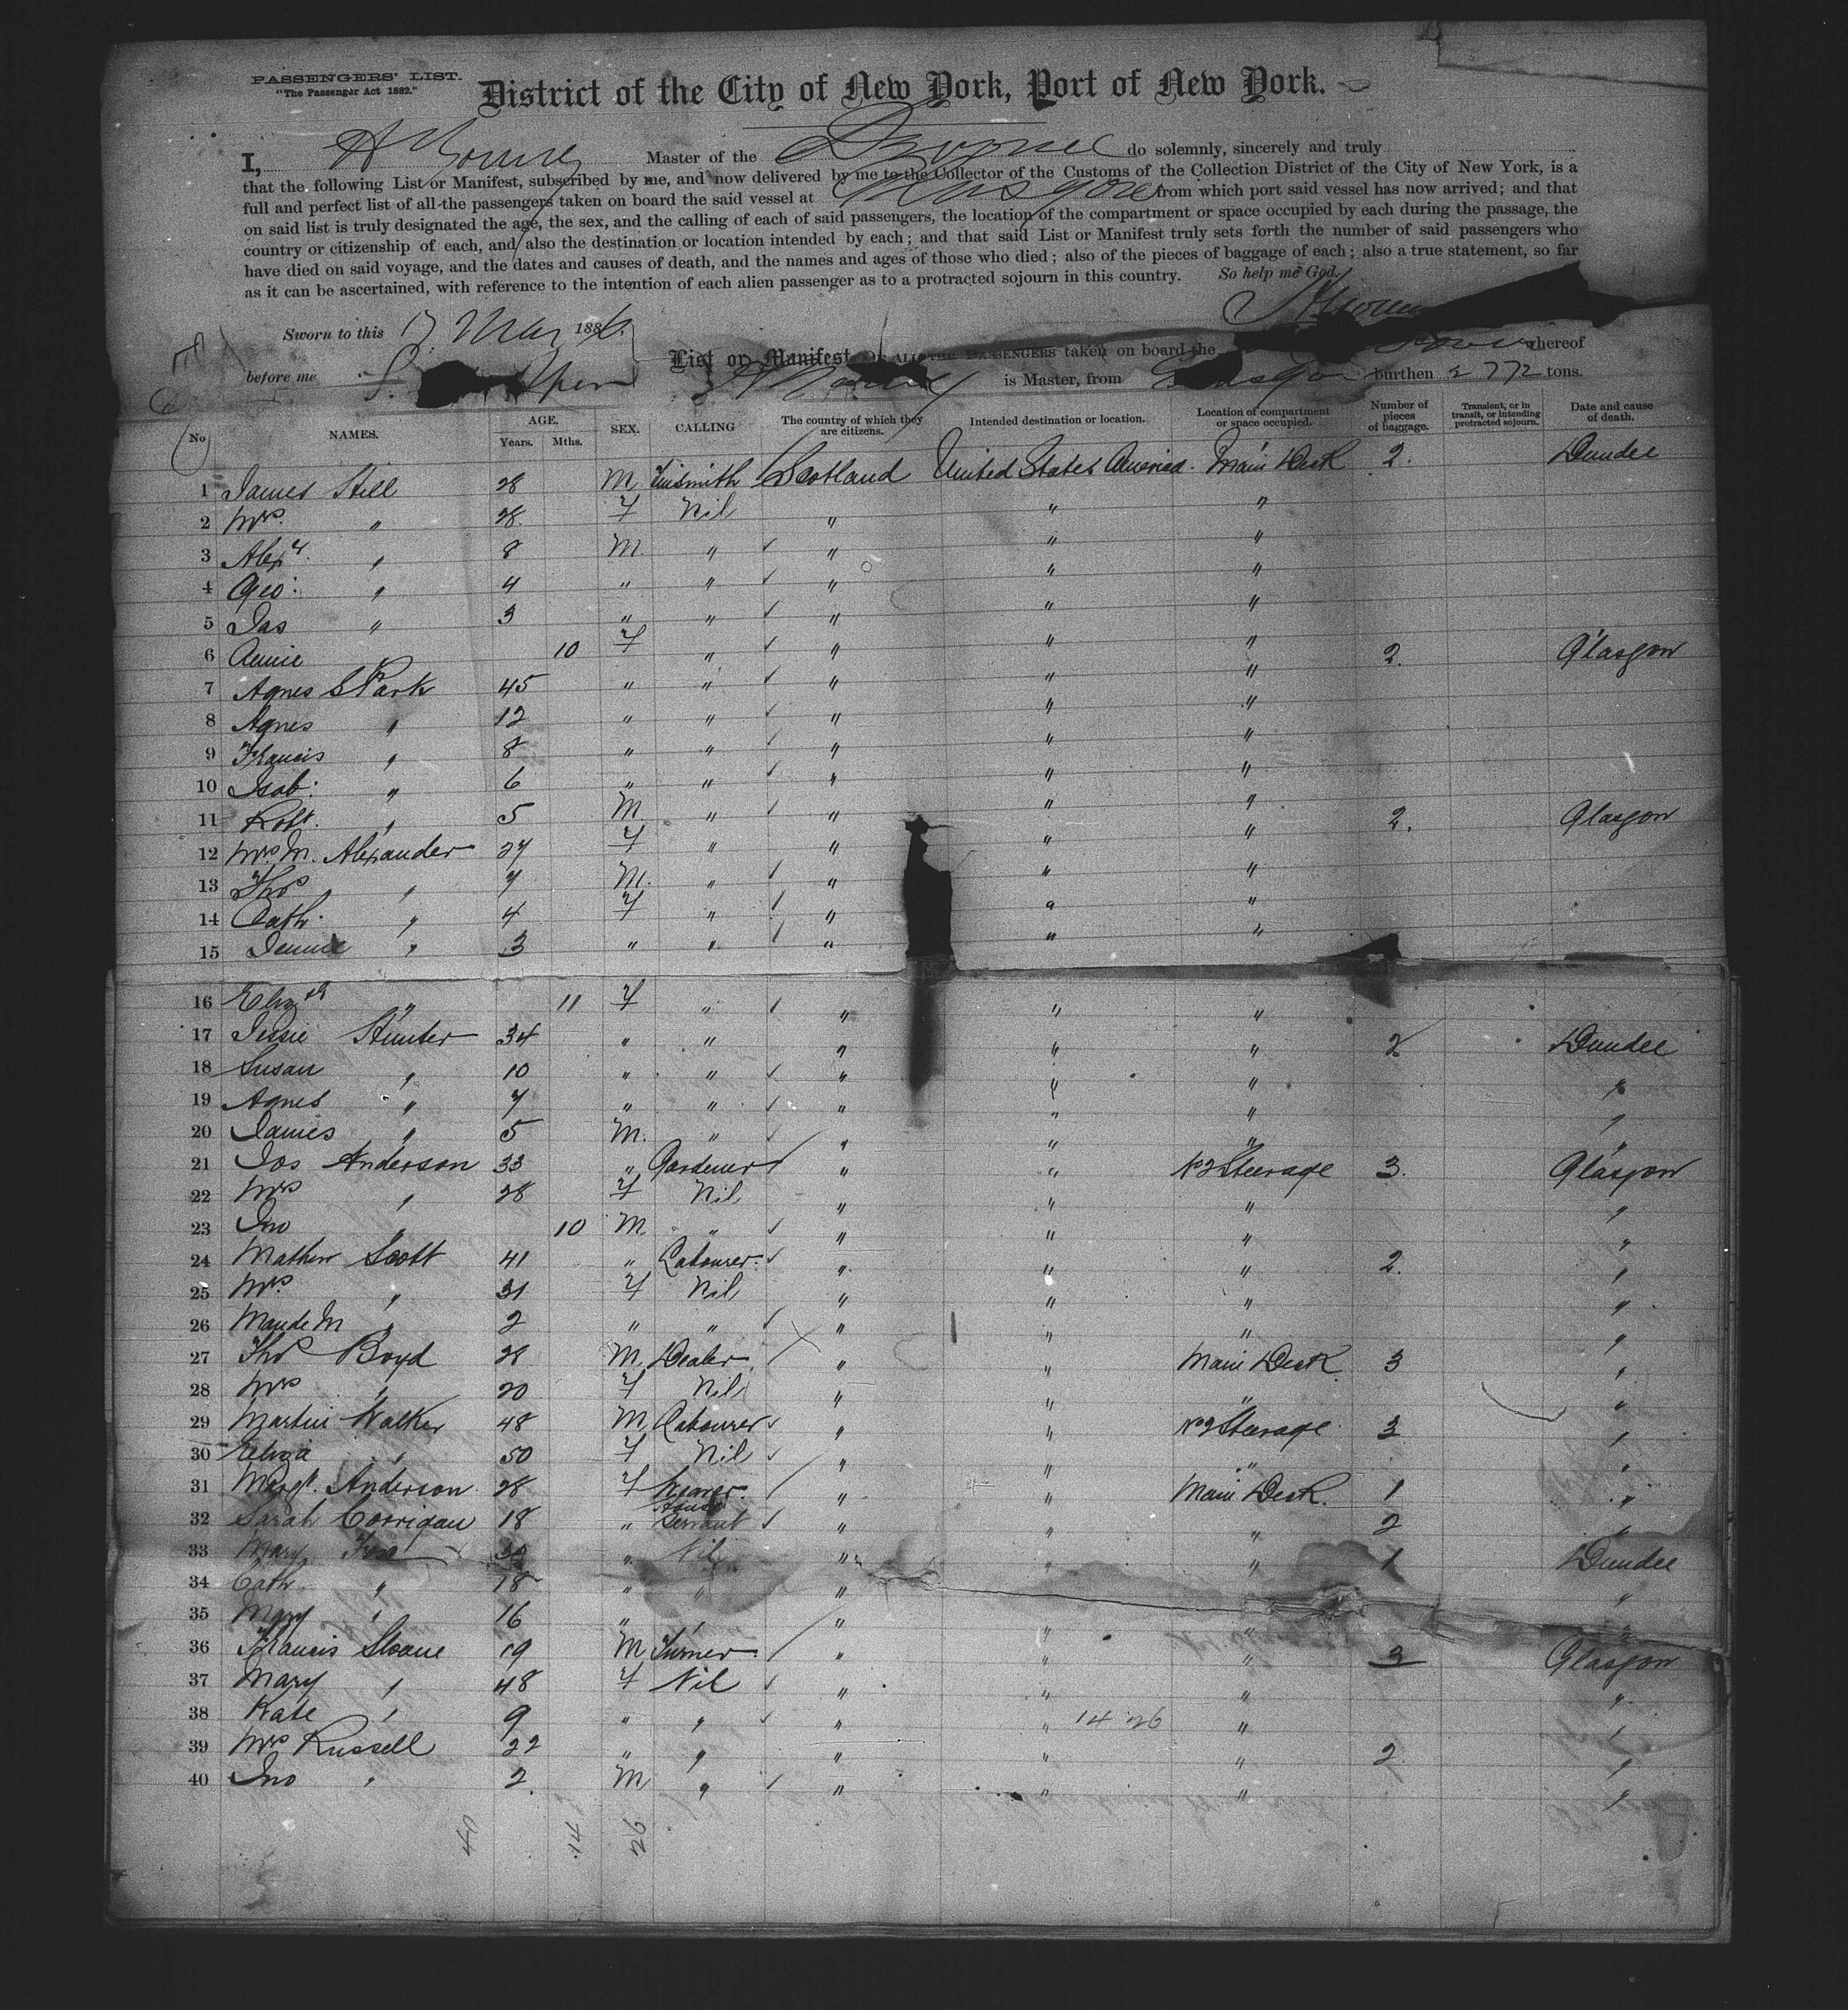 PASSENGERS' LIST.
"The Passenger Act 1882."
District of the City of New York, Port of New York.
I, Master of the do solemnly, sincerely and truly
that the following List or Manifest, subscribed by me, and now delivered by me to the Collector of the Customs of the Collection District of the City of New York, is a
full and perfect list of all the passengers taken on board the said vessel at Glasgow from which port said vessel has now arrived; and that
on said list is truly designated the age, the sex, and the calling of each of said passengers, the location of the compartment or space occupied by each during the passage, the
country or citizenship of each, and also the destination or location intended by each; and that said List or Manifest truly sets forth the number of said passengers who
have died on said voyage, and the dates and causes of death, and the names and ages of those who died; also of the pieces of baggage of each; also a true statement, so far
as it can be ascertained, with reference to the intention of each alien passenger as to a protracted sojourn in this country. So help me God.
Sworn to this 17 May 1886.
List or Manifest OF ALL THE PASSENGERS taken on board the whereof
before me is Master, from Glasgow burthen 2772 tons.
No NAMES. AGE. Years. Mths. SEX. CALLING The country of which they are citizens. Intended destination or location. Location of compartment or space occupied. Number of pieces of baggage. Transient, or in transit, or intending protracted sojourn. Date and cause of death.
1 James Still 28 M Tinsmith Scotland United States America. Main Deck 2. Dundee
2 Mrs. " 28 F Nil " " "
3 Alexr. " 8 M. " " " "
4 Geo: " 4 " " " " "
5 Jas " 3 " " " " "
6 Annie 10 F " " " " 2. Glasgow
7 Agnes S Park 45 " " " " "
8 Agnes " 12 " " " " "
9 Francis " 8 " " " " "
10 Isob: " 6 " " " " "
11 Robt. " 5 M " " " " 2. Glasgow
12 Mrs. M. Alexander 27 F " " " "
13 Thos " 7 M. " " " "
14 Cath. " 4 F " " " "
15 Jennie " 3 " " " " "
16 Elizth " 11 F " " " "
17 Jessie Hunter 34 " " " " " 2 Dundee
18 Susan " 10 " " " " " "
19 Agnes " 7 " " " " " "
20 James " 5 M. " " " " "
21 Jos Anderson 33 " Gardener " " No 2 Steerage 3. Glasgow
22 Mrs " 28 F Nil " " " "
23 Jno " 10 M " " " " "
24 Mathew Scott 41 " Labourer " " " 2. "
25 Mrs. " 31 F Nil " " " "
26 Maude M " 2 " " " " " "
27 Thos Boyd 28 M. Dealer " " Main Deck 3 "
28 Mrs " 20 F Nil " " " "
29 Martin Walker 48 M Labourer " " No 2 Steerage 3 "
30 " 50 F Nil " " " "
31 Margt. Anderson 28 F Weaver. " " Main Deck. 1 "
32 Sarah Corrigan 18 " House Servant " " " 2 "
33 Mary " Nil " " " 1 Dundee
34 Cath. " 18 " " " " " "
35 Mary " 16 " " " " " "
36 Francis Sloane 19 M Turner " " " 3 Glasgow
37 Mary " 48 F Nil " " " "
38 Kate " 9 " " " " 14 26 " "
39 Mrs Russell 22 " " " " " 2. "
40 Jno " 2. M " " " " "
40 14 26